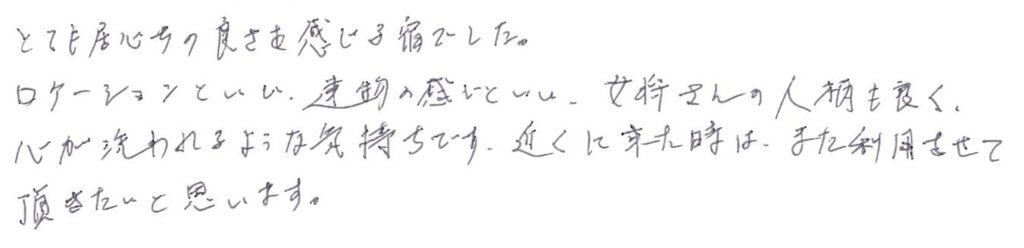 とても居心地の良さを感じる宿でした。
ロケーションといい、建物の感じといい、女将さんの人柄も良く、
心が洗われるような気持ちです。近くに来た時は、また利用させて
頂きたいと思います。